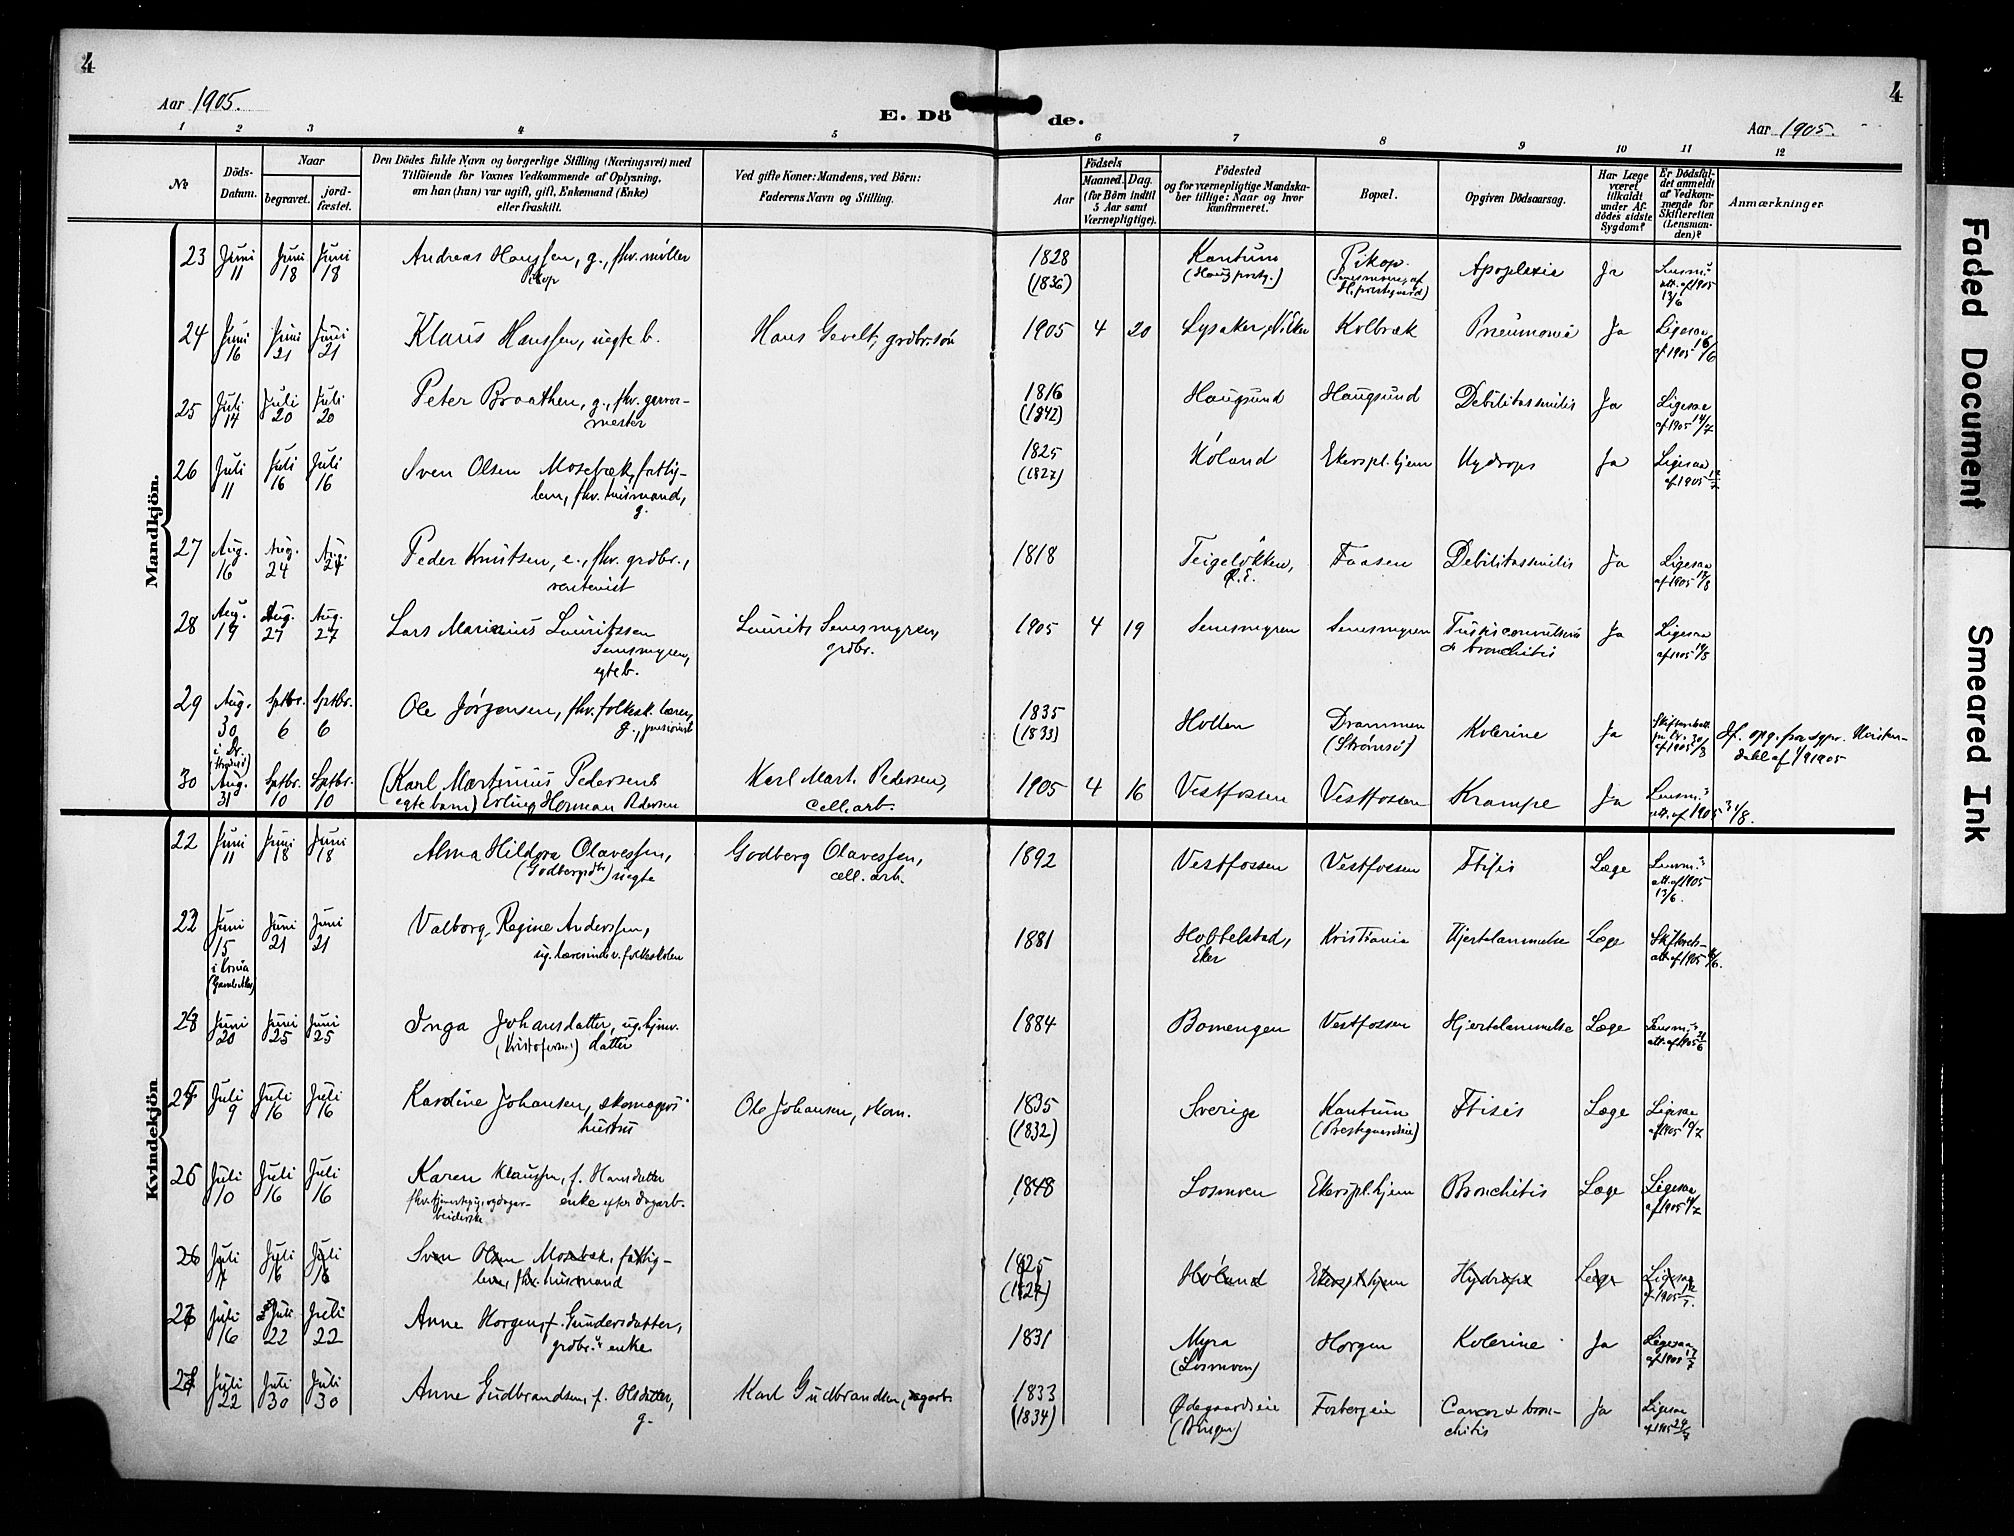 4
4
Aar 1905.
E. Dö
de.
Aar 1905.
1 2 3 4 5 6 7 8 9 10 11 12
No
Döds-
Datum.
Naar
begravet.
jord-
fæstet.
Den Dödes fulde Navn og borgerlige Stilling (Næringsvei) med
Tilföiende for Voxnes Vedkommende af Oplysning,
om han (hun) var ugift, gift, Enkemand (Enke)
eller fraskilt.
Ved gifte Koner: Mandens, ved Börn:
Faderens Navn og Stilling.
Aar
Födsels
Maaned. Dag.
(for Börn indtil
5 Aar samt
Værnepligtige).
Födested
og for værnepligtige Mandska-
ber tillige: Naar og hvor
konfirmeret.
Bopæl.
Opgiven Dödsaarsag.
Har Læge
været
tilkaldt
under Af-
dödes sidste
Sygdom?
Er Dödsfal-
det anmeldt
af Vedkom-
mende for
Skifteretten
(Lensman-
den)?
Anmærkninger
Mandkjön.
23 Juni 11 Juni 18 Juni 18 Andreas Hanssen, g., fhv. møller 1828 Kantum Pikop. Apoplexia Ja Lensm.s
Pikop (1836) (Haug prstg.) att. af 1905
13/6
24 Juni 16 Juni 21 Juni 21 Klaus Hanssen, uegte b. Hans Gevelt, grdbr.søn 1905 4 20 Lysaker, N. Eker Kolbræk Pneumonia Ja Ligesaa
af 1905 16/6
25 Juli 14 Juli 20 Juli 20 Peter Braathen, g., fhv. garver- 1816 Haugsund Haugsund Debilitas senilis Ja Ligesaa
mester (1842) af 1905 14/7
26 Juli 11 Juli 16 Juli 16 Sven Olsen Mosebæk, fattig- 1825 Høland Ekers pl. hjem Hydrops Ja Ligesaa
lem, fhv. husmand, (1827) af 1905 12/7
g.
27 Aug. 16 Aug. 24 Aug. 24 Peder Knutsen, e., fhv. grdbr., 1818 Teigeløkken, Faasen Debilitas senilis Ja Ligesaa
rentenist Ø. E. af 1905 17/8
28 Aug. 19 Aug. 27 Aug. 27 Lars Marinius Lauritssen Laurits Semsmyren, 1905 4 19 Semsmyren Semsmyren Tussis convulsiva Ja Ligesaa
Semsmyren, grdbr. & bronchitis af 1905 19/8
egte b.
29 Aug. 30 Sptbr. 6 Sptbr. 6 Ole Jørgensen, fhv. folkesk. lærer, 1835 Holten Drammen Kolerine Ja
i Dr. g., pensionist (1833) (Strømsø)
30 Aug. 31 Sptbr. 10 Sptbr. 10 (Karl Martinius Pedersens Karl Mart. Pedersen, 1905 4 16 Vestfossen Vestfossen Krampe Ja Lensm.s
egte barn) Erling Herman Pedersen cell. arb. att. af 1905 31/8.
Kvindekjön
22 Juni 11 Juni 18 Juni 18 Alma Hildora Olavessen, Godberg Olavessen, 1892 Vestfossen Vestfossen Ftisis Læge Lensm.s
(Godbergsdtr.) uegte cell. arb. att. af 1905
13/6.
22 Juni 15 Juni 21 Juni 21 Valborg Regine Anderssen, 1881 Hobbelstad, Kristiania Hjertelammelse Læge Skifterets-
ug. lærerinde v. folkeskolen Eker att. af 1905 16/6.
23 Juni 20 Juni 25 Juni 25 Inga Johansdatter, ug. hjmv. 1884 Bomengen Vestfossen Hjertelammelse Læge Lensm.s
(Kristofersen) datter att. af 1905 21/6
24 Juli 9 Juli 16 Juli 16 Karoline Johansen, skomagers Ole Johansen, skom. 1835 Sverige Kantum Ftisis Læge Ligesaa
hustru (1832) (Prestegaardseie) af 1905 10/7
25 Juli 10 Juli 16 Juli 16 Karen Klaussen, f. Hansdatter 1848 Losmoen Ekers pl. hjem Bronchitis Læge Ligesaa
enke efter dagarb. af 1905 11/7
26 Juli 11 Juli 16 Juli 16 Sven Olsen Mosebæk, fattig- 1825 Høland Ekers pl. hjem Hydrops Læge Ligesaa
lem, fhv. husmand (1827) af 1905 12/7.
26 Juli 16 Juli 22 Juli 22 Anne Horgen, f. Gundersdatter, 1831 Myra Horgen Kolerine Ja Ligesaa
grdbr.s enke (Losmoen) af 1905 17/7
27 Juli 22 Juli 30 Juli 30 Anne Gudbrandsen, f. Olsdatter, Karl Gudbrandsen, dagarb. 1833 Ødegaardseie Fosbergeie Cancer & bron- Ja Ligesaa
g. (1834) (Bingen) chitis af 1905 24/7
Faded Document
Smeared Ink